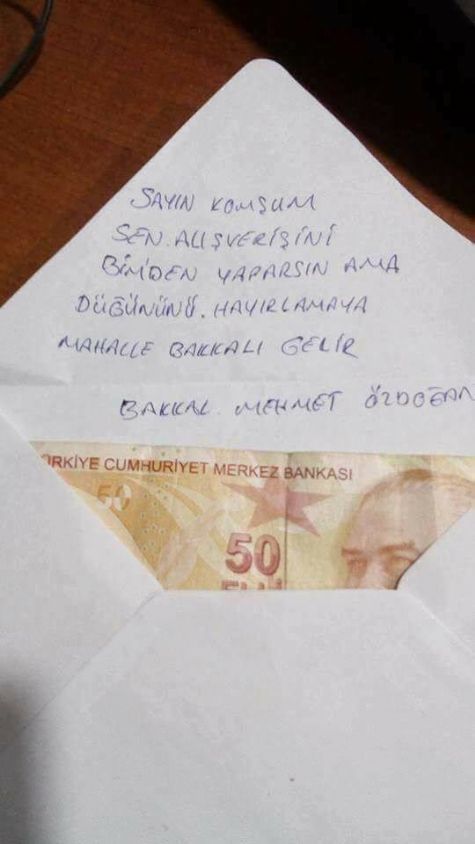 SAYIN KOMŞUM
SEN. ALIŞVERİŞİNİ
BİM'DEN YAPARSIN AMA
DÜĞÜNÜNÜ. HAYIRLAMAYA
MAHALLE BAKKALI GELİR
BAKKAL. MEHMET ÖZDOĞAN
ÜRKİYE CUMHURİYET MERKEZ BANKASI
50
50